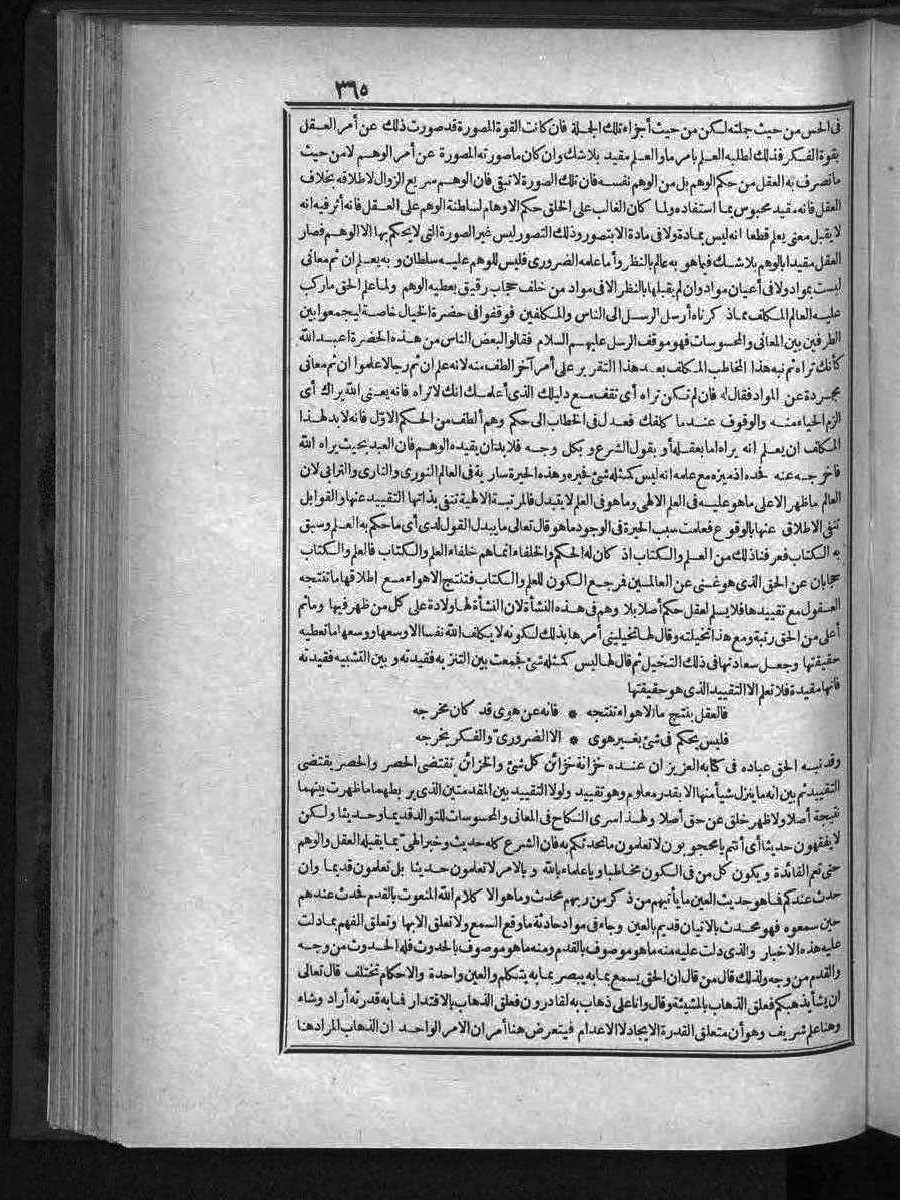 ٣٦٥
فى الحس من حيث جلته لكن من حيث أجزاء تلك الجلة فان كانت القوة المصورة قد صورت ذلك عن أمر العقل
بقوة الفكر فذلك لطلبه العلم بامر ما والعلم مقيد بلاشك وان كان ماصورته المصورة عن أمر الوهم لامن حيث
ماتصرف به العقل من حكم الوهم بل من الوهم نفسه فان تلك الصورة لاتبقى فان الوهم سريع الزوال لاطلاقه بخلاف
العقل فانه مقيد محبوس بما استفاده ولما كان الغالب على الخلق حكم الاوهام لسلطنة الوهم على العقل فانه أثر فيه انه
لا يقبل معنى يعلم قطعا انه ليس بمادة ولا فى مادة الا بتصور وذلك التصور ليس غير الصورة التى لا يحكم بها الا الوهم فصار
العقل مقيدا بالوهم بلاشك فيما هو به عالم بالنظر وأما علمه الضرورى فليس للوهم عليه سلطان و به يعلم ان ثم معانى
ليست بمواد ولا فى أعيان مواد وان لم يقبلها بالنظر الا فى مواد من خلف حجاب رقيق يعطيه الوهم ولما علم الحق ماركب
عليه العالم المكلف مماذ كرناه أرسل الرسل الى الناس والمكلفين فوقفوا فى حضرة الخيال خاصة ليجمعوا بين
الطرفين بين المعانى والمحسوسات فهو موقف الرسل عليهم السلام فقالوا لبعض الناس من هذه الحضرة اعبد الله
كأنك تراه ثم نبه هذا المخاطب المكلف بعد هذا التقرير على أمر آخر ألطف منه لانه علم ان ثم رجالا علموا ان ثم معانى
مجردة عن المواد فقال له فان لم تكن تراه أى تقف مع دليلك الذى أعلمك انك لا تراه فانه يعنى الله يراك أى
الزم الحياء منه والوقوف عند ما كلفك فعدل فى الخطاب الى حكم وهم ألطف من الحكم الاول فانه لابد لهذا
المكلف ان يعلم انه يراه اما بعقله أو بقول الشرع و بكل وجه فلابد ان يقيده الوهم فان العبد بحيث يراه الله
فأخرجه عنه فحده اذ ميزه مع علمه انه ليس كمثله شئ فحيره وهذه الحيرة سارية فى العالم النورى والنارى والترابى لان
العالم ماظهر الا على ماهو عليه فى العلم الالهى وماهو فى العلم لا يتبدل فالمرتبة الالهية تنفى بذاتها التقييد عنها والقوابل
تنفى الاطلاق عنها بالوقوع فعلمت سبب الحيرة فى الوجود ماهو قال تعالى مايبدل القول لدى أى ماحكم به العلم وسبق
به الكتاب فعرفنا ذلك من العلم والكتاب اذ كان له الحكم والخلفاء انماهم خلفاء العلم والكتاب فالعلم والكتاب
حجابان عن الحق الذى هو غنى عن العالمين فرجع الكون للعلم والكتاب فتنتج الاهواء مع اطلاقها ماتنتجه
العقول مع تقييدها فلا يسلم لعقل حكم أصلا بلا وهم فى هذه النشأة لان النشأة لها ولادة على كل من ظهر فيها وماثم
أعلى من الحق رتبة ومع هذا تخيلته وقال لها تخيلينى أمرها بذلك لكونه لا يكلف الله نفسا الا وسعها ووسعها ماتعطيه
حقيقتها وجعل سعادتها فى ذلك التخيل ثم قال لها ليس كمثله شئ فجمعت بين التنزيه فقيدته و بين التشبيه فقيدته
فانها مقيدة فلاتعلم الا التقييد الذى هو حقيقتها
فالعقل ينتج ما الاهواء تنتجه * فانه عن هوى قد كان مخرجه
فليس يحكم فى شئ بغير هوى * الا الضرورى والفكر يخرجه
وقد نبه الحق عباده فى كتابه العزيز ان عنده خزانة خزائن كل شئ والخزائن تقتضى الحصر والحصر يقتضى
التقييد ثم بين انه ماينزل شيأ منها الا بقدر معلوم وهو تقييد ولولا التقييد بين المقدمتين الذى يربطهما ماظهرت بينهما
نتيجة أصلا ولا ظهر خلق عن حق أصلا ولهذا سرى النكاح فى المعانى والمحسوسات للتوالد قديما وحديثا ولكن
لا يفقهون حديثا أى أنتم يامحجوبون لاتعلمون مانحدثكم به فان الشرع كله حديث وخبر الهى بما يقبله العقل والوهم
حتى تعم الفائدة و يكون كل من فى الكون مخاطبا وياعلماء بالله و بالامر لاتعلمون حديثا بل تعلمون قديما وان
حدث عندكم فماهو حديث العين مايأتيهم من ذكر من ربهم محدث وماهو الا كلام الله المنعوت بالقدم فحدث عندهم
حين سمعوه فهو محدث بالاتيان قديم بالعين وجاء فى مواد حادثة ماوقع السمع ولاتعلق الابها وتعلق الفهم بمادلت
عليه هذه الاخبار والذى دلت عليه منه ماهو موصوف بالقدم ومنه ماهو موصوف بالحدوث فله الحدوث من وجه
والقدم من وجه ولذلك قال من قال ان الحق يسمع بمابه يبصر بمابه يتكلم والعين واحدة والاحكام تختلف قال تعالى
ان يشأ يذهبكم فعلق الذهاب بالمشيئة وقال وانا على ذهاب به لقادرون فعلق الذهاب بالاقتدار فمابه قدرته أراد وشاء
وهنا علم شريف وهو أن متعلق القدرة الايجاد لا الاعدام فيتعرض هنا أمران الامر الواحد ان الذهاب المراد هنا